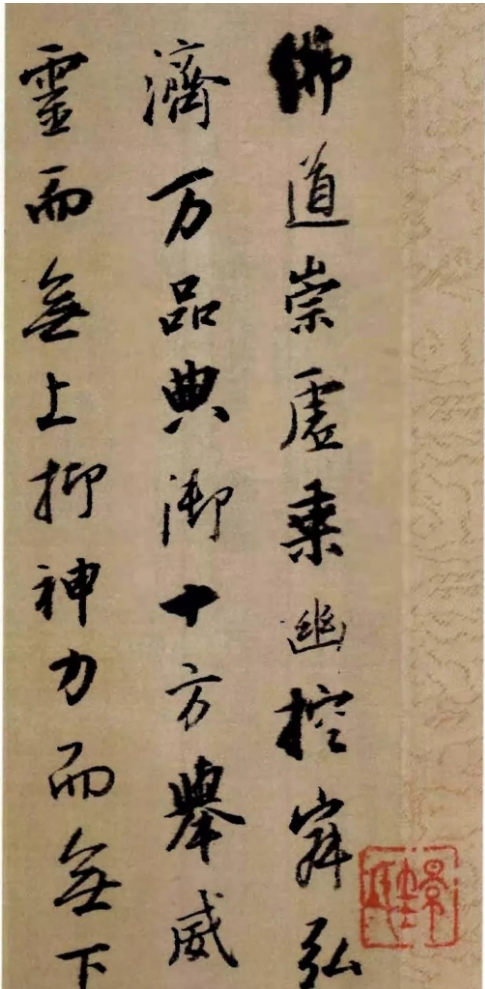 佛道崇虛乗幽控寂弘
濟万品典御十方舉威
靈而無上抑神力而無下